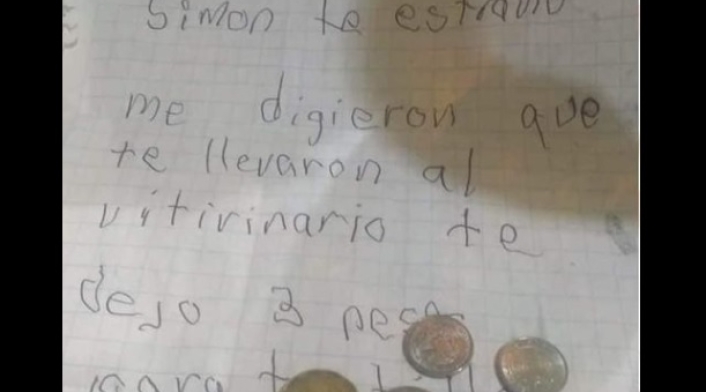 Simon te estraño
me digieron que
te llevaron al
vitirinario te
dejo 3 pesos
para t